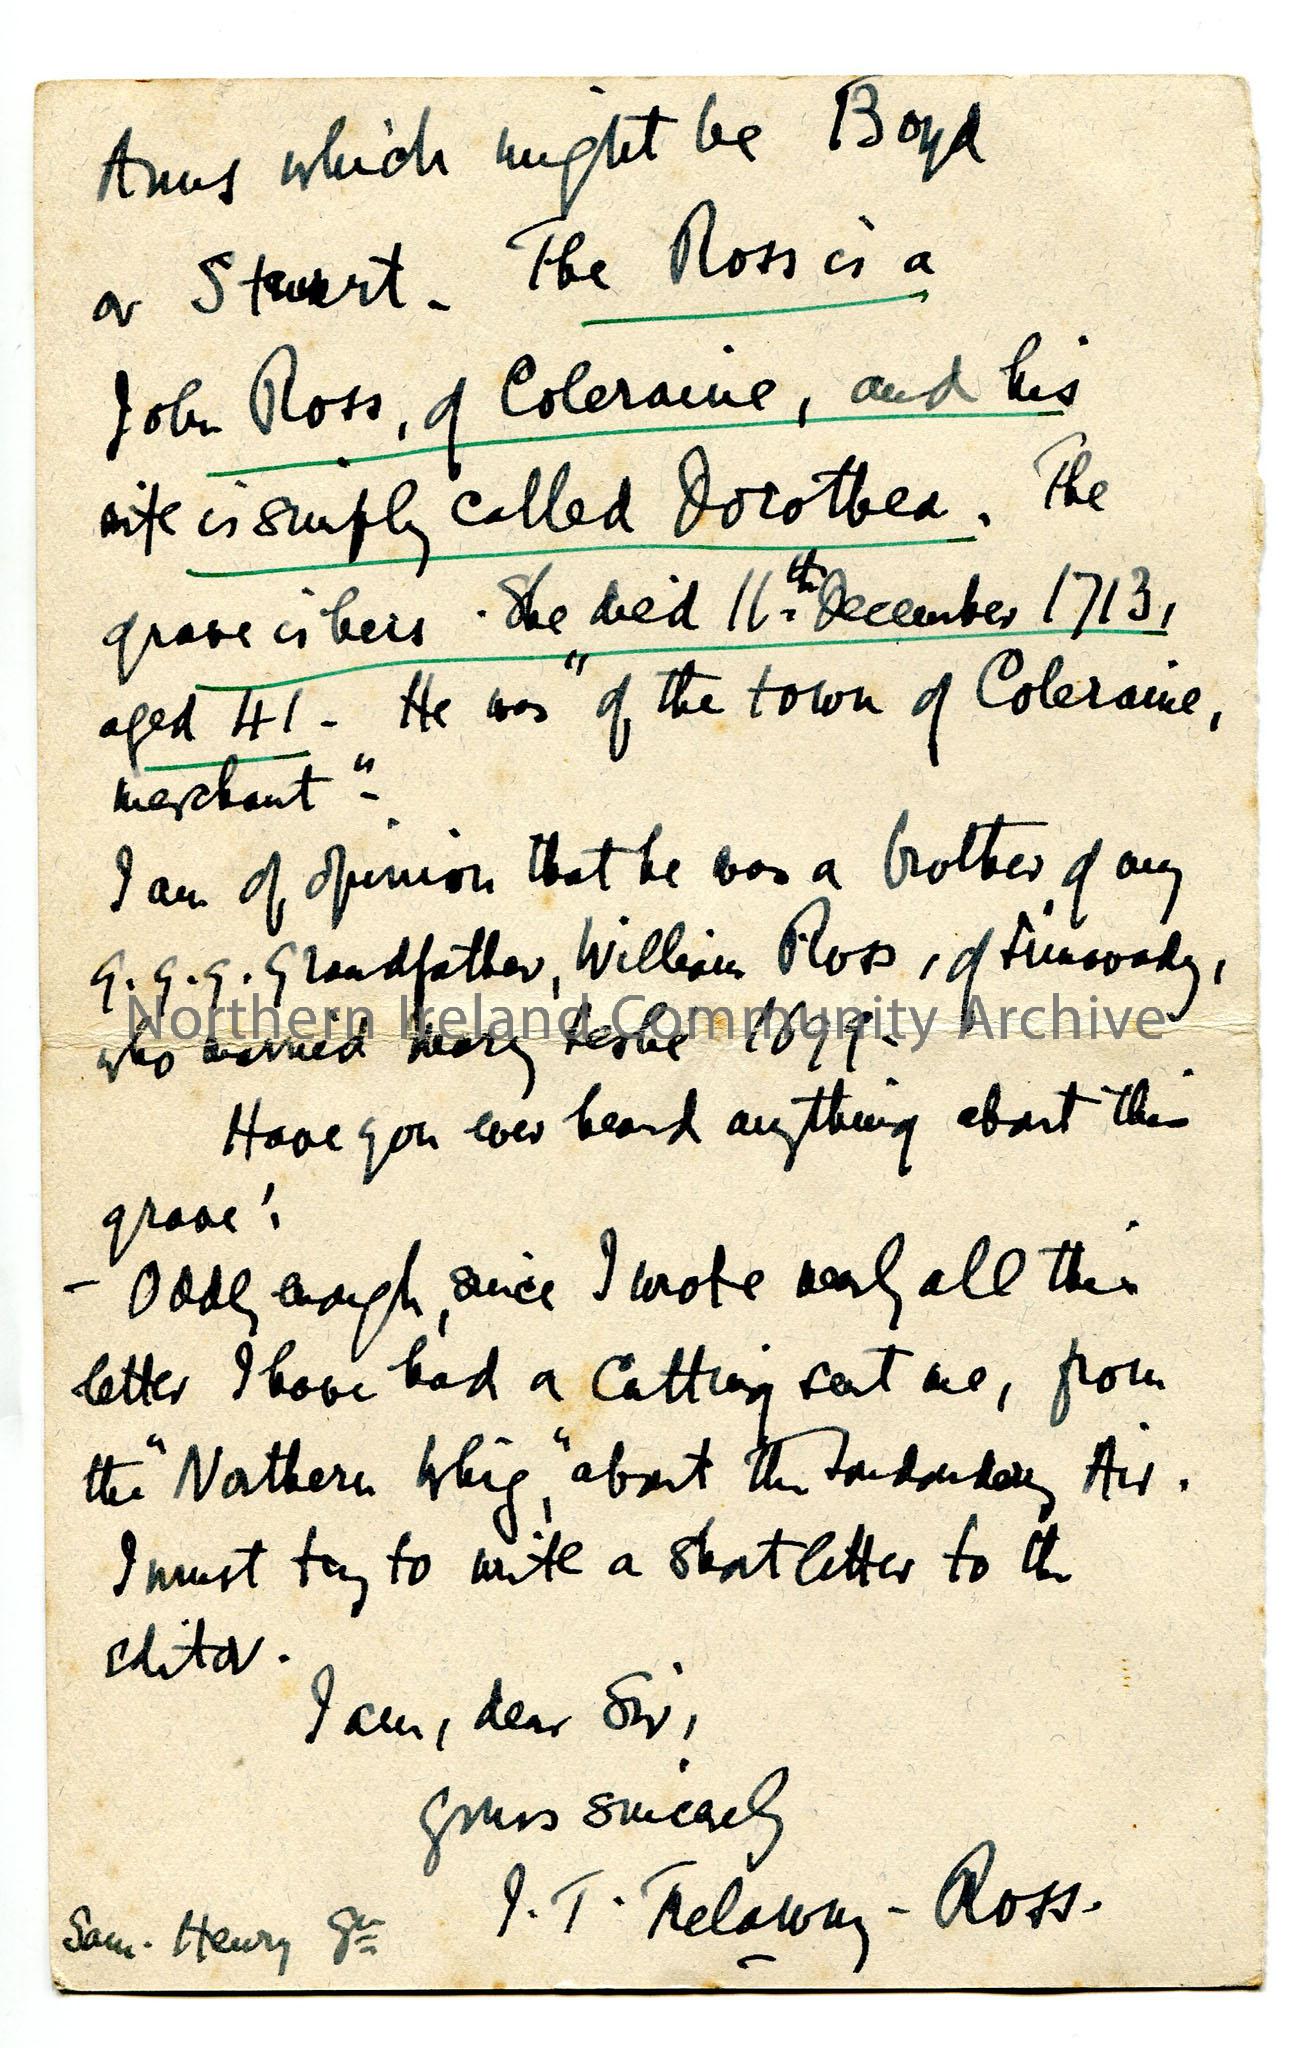 Arms which might be Boyd
or Stewart - The Ross is a
John Ross, of Coleraine, and his
wife is simply called Dorothea. The
grave is hers. She died 11th December 1713,
aged 41 - He was "of the town of Coleraine,
merchant" -
I am of opinion that he was a brother of my
g.g.g. Grandfather, William Ross, of Limavady,
who married Mary Leslie 1699 -
Have you ever heard anything about this
grave?
- Oddly enough, since I wrote nearly all this
letter I have had a cutting sent me, from
the "Northern Whig," about the Londonderry Air.
I must try to write a short letter to the
editor.
I am, dear Sir,
yours sincerely
J. T. Trelawny - Ross.
Sam. Henry
Northern Ireland Community Archive